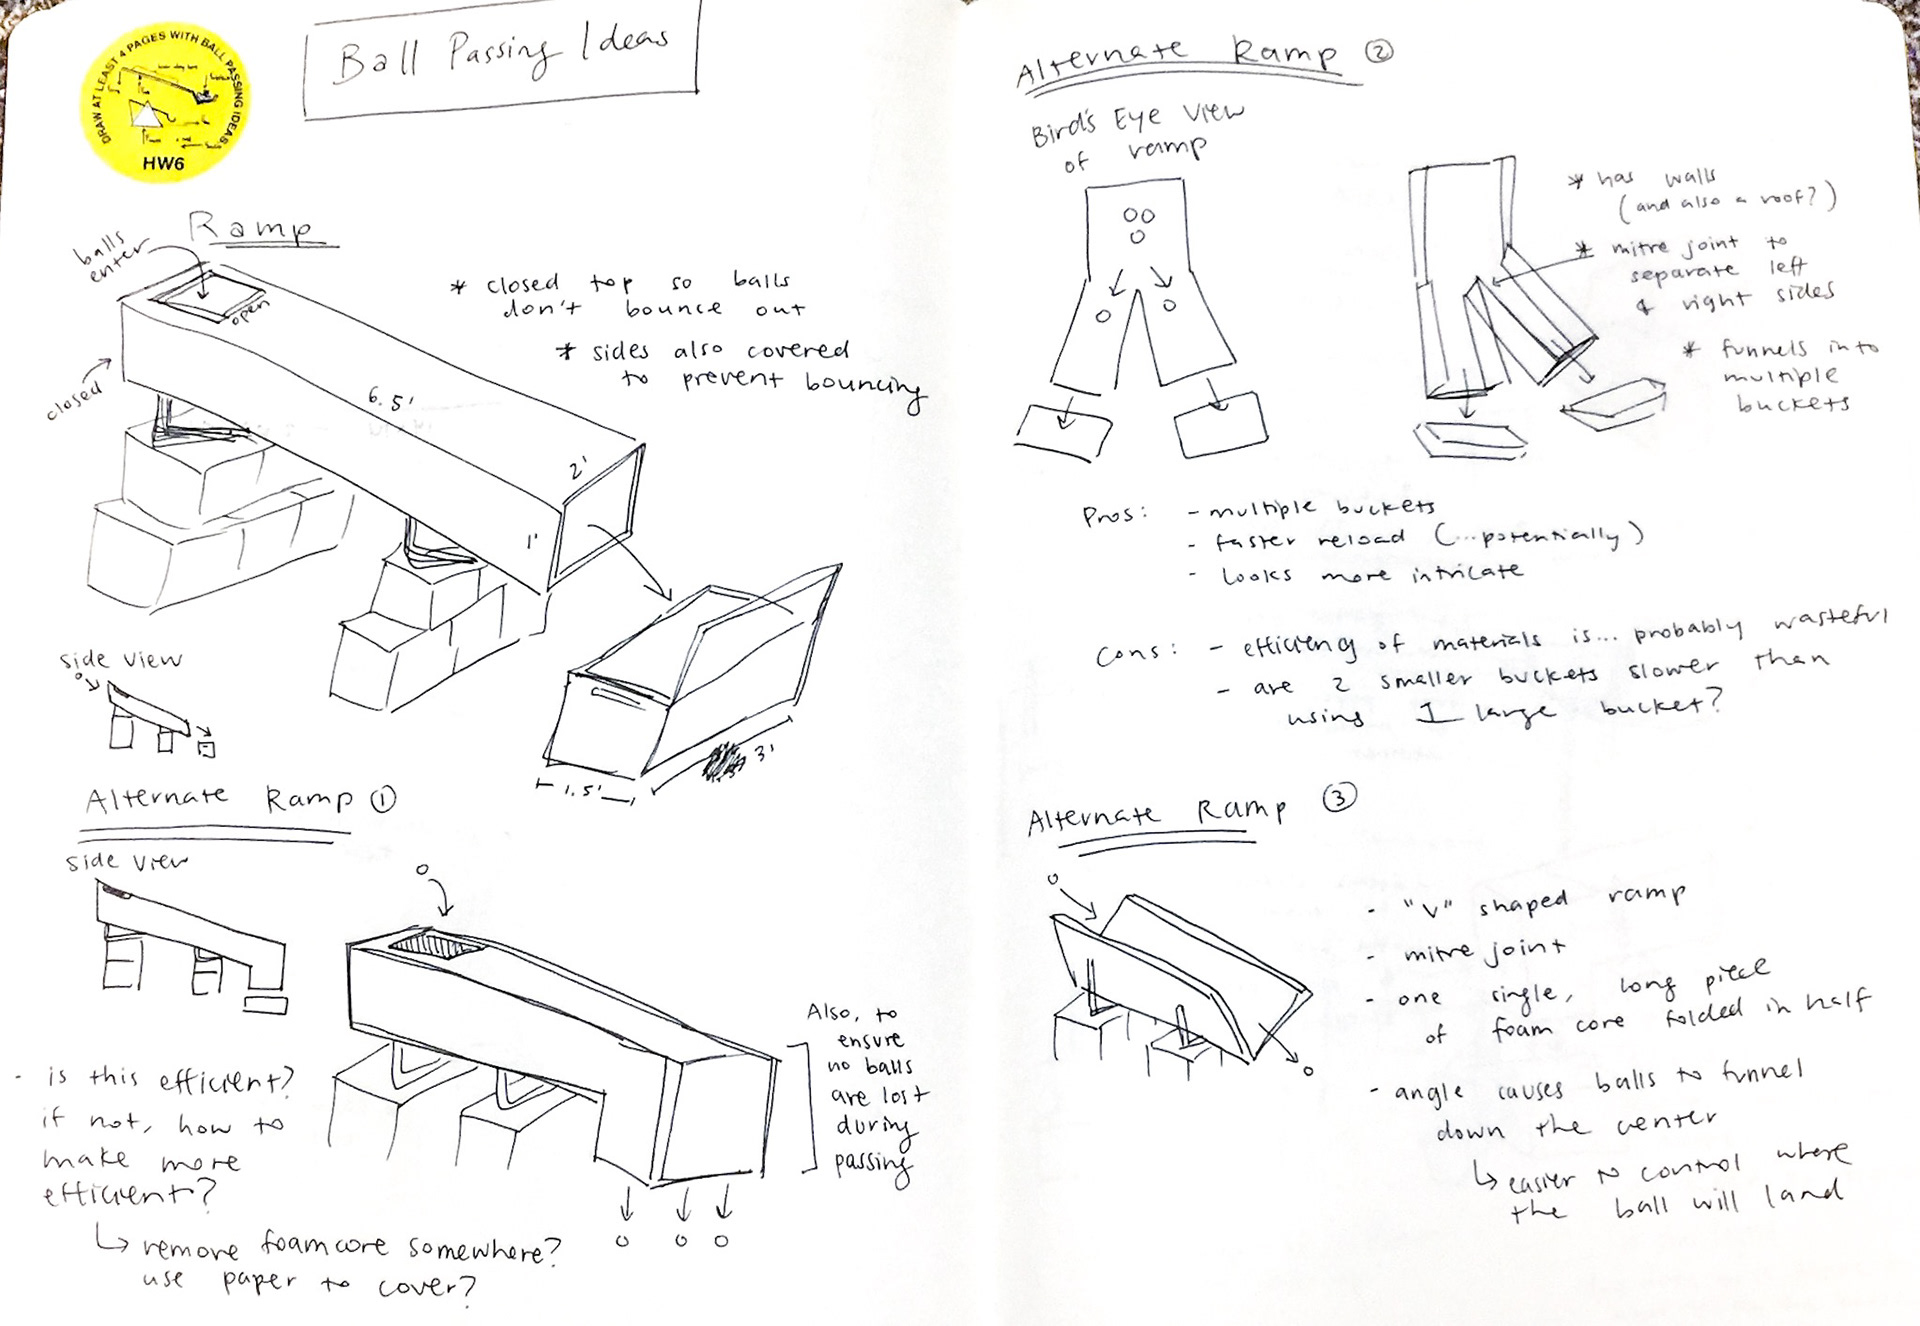 DRAW AT LEAST 4 PAGES WITH BALL PASSING IDEAS
HW6
Ball Passing Ideas
Ramp
balls
enter
open
closed
* closed top so balls
don't bounce out
* sides also covered
to prevent bouncing
6.5'
2'
1'
3'
1.5'
side view
Alternate Ramp ①
side view
- is this efficient?
if not, how to
make more
efficient?
↳ remove foamcore somewhere?
use paper to cover?
Also, to
ensure
no balls
are lost
during
passing
Alternate Ramp ②
Bird's Eye View
of ramp
* has walls
(and also a roof?)
* mitre joint to
separate left
& right sides
* funnels into
multiple
buckets
Pros: - multiple buckets
- faster reload (...potentially)
- looks more intricate
Cons: - efficieny of materials is... probably wasteful
- are 2 smaller buckets slower than
using 1 large bucket?
Alternate Ramp ③
- "V" shaped ramp
- mitre joint
- one single, long piece
of foam core folded in half
- angle causes balls to funnel
down the center
↳ easier to control where
the ball will land